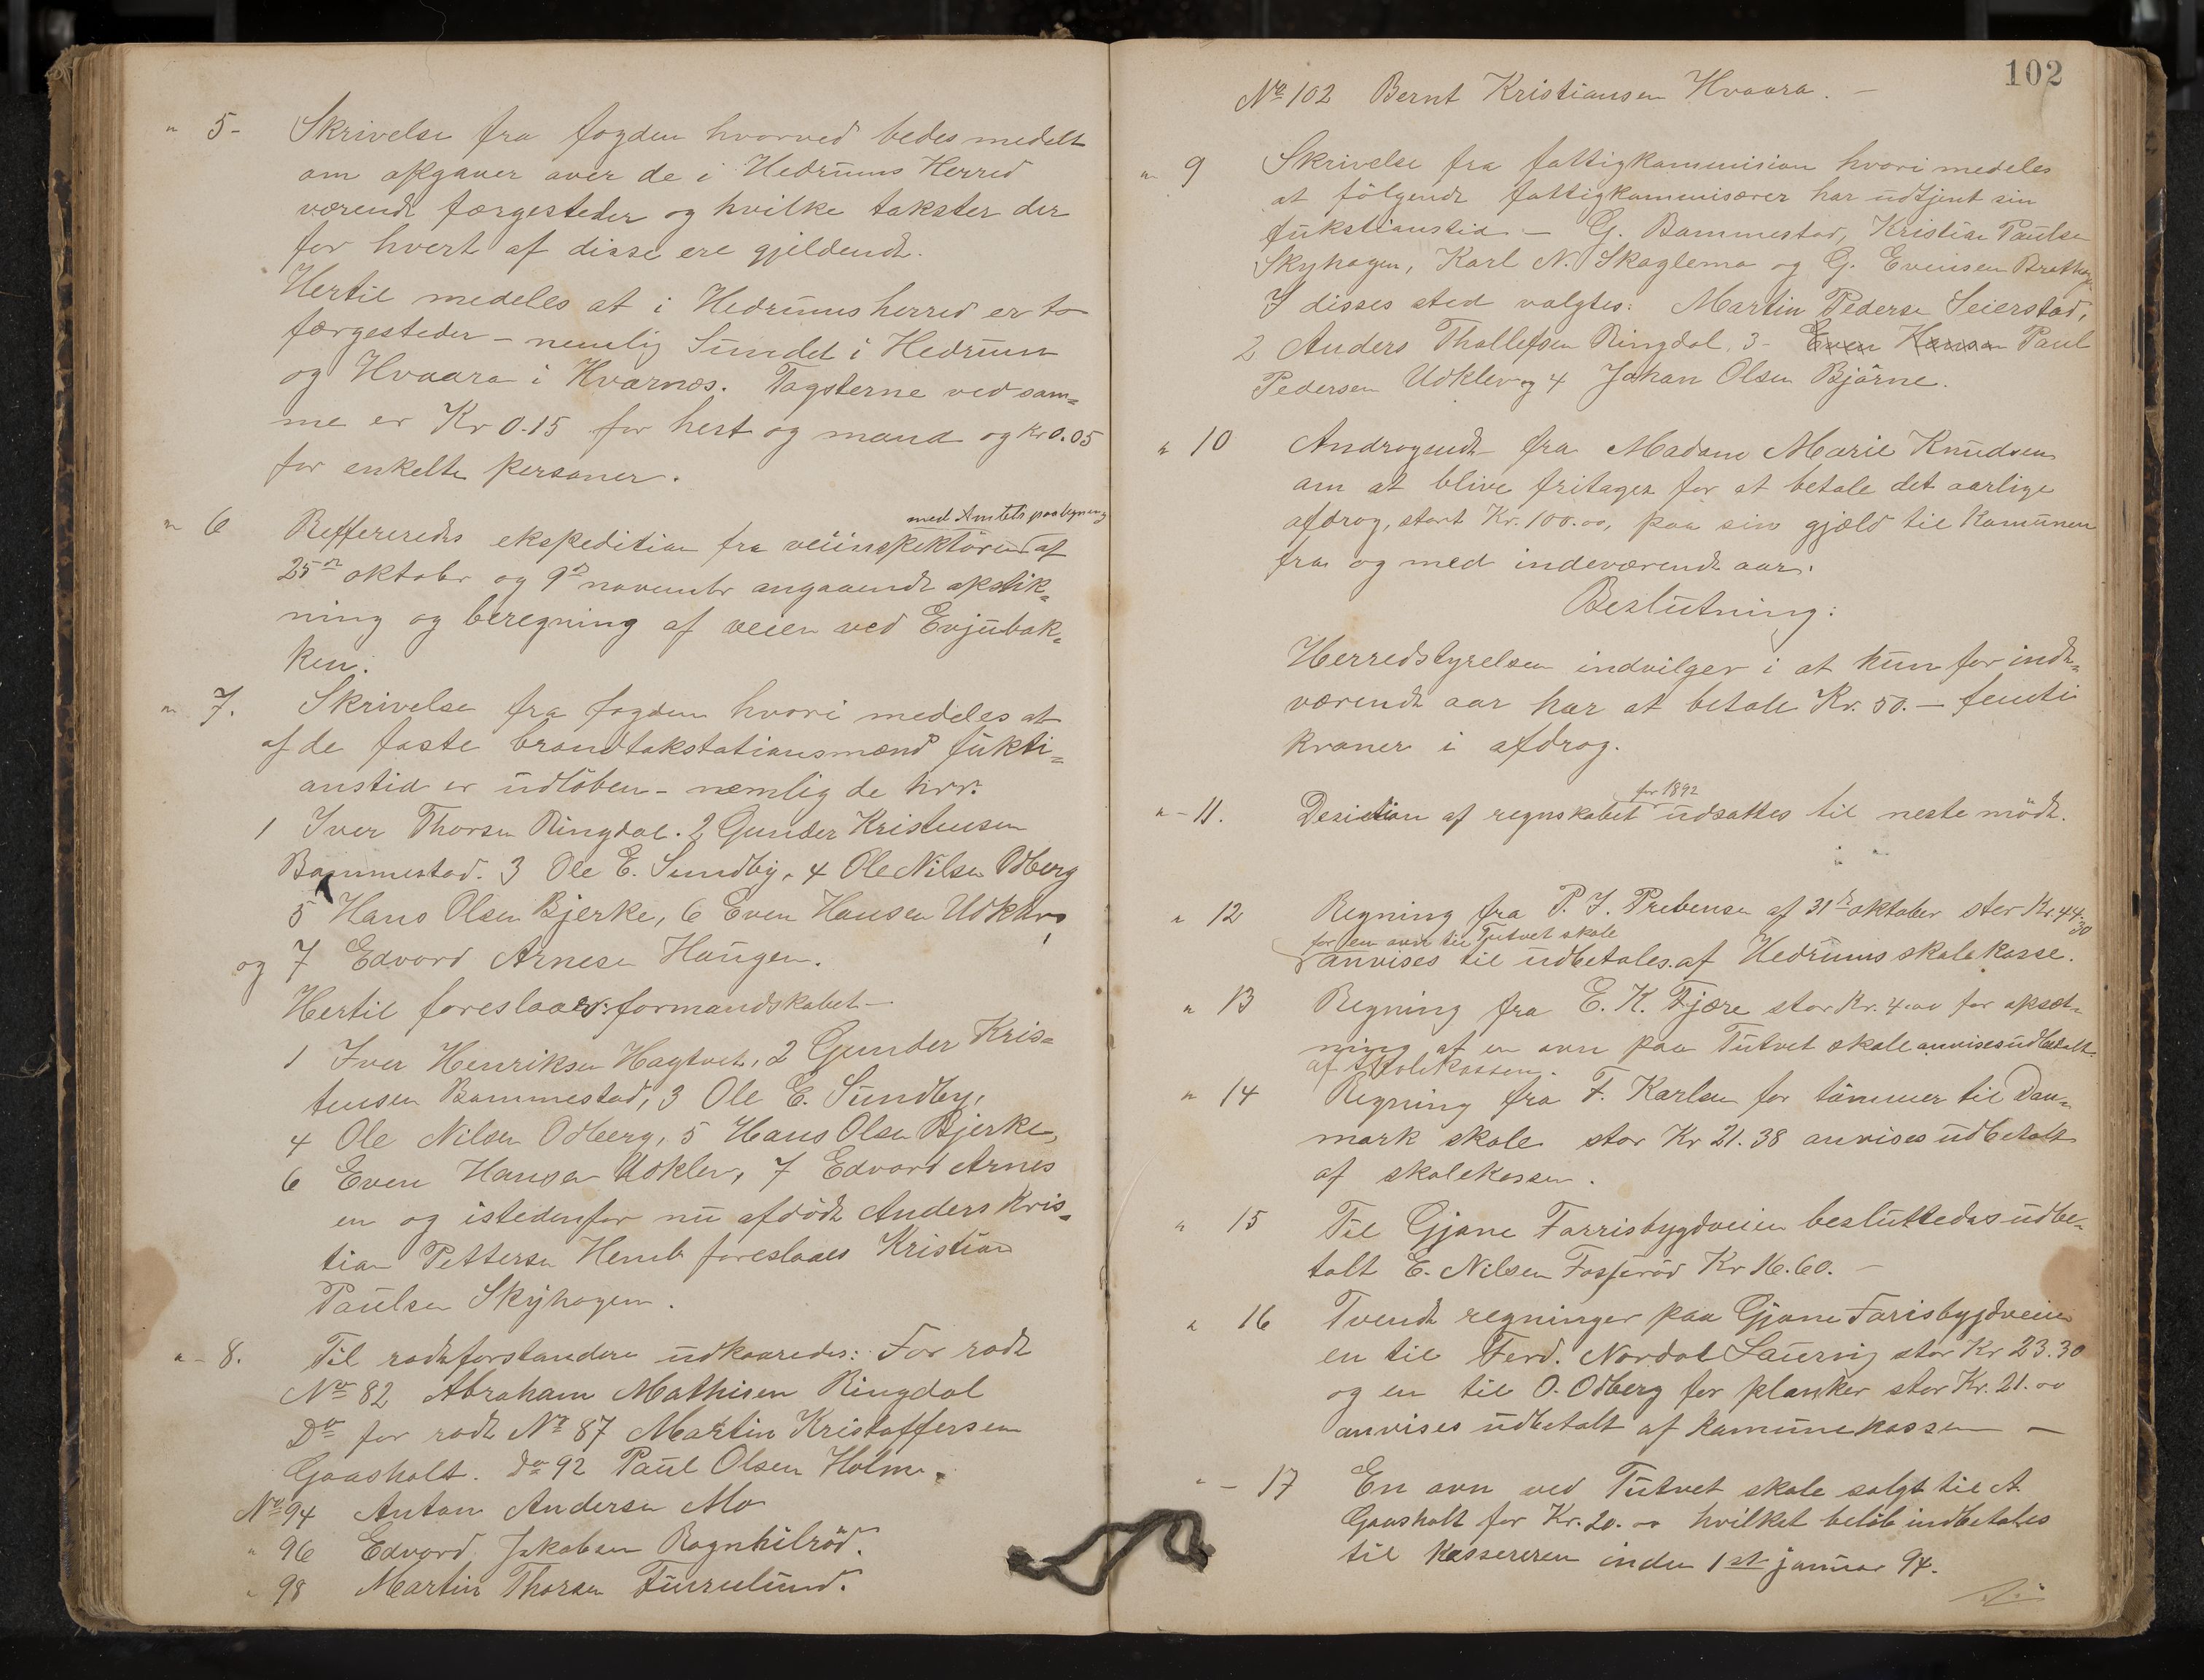 " 5- Skrivelse fra fogden hvorved bedes meddelt
om opgaver over de i Hedrums Herred
værende færgesteder og hvilke takster der
for hvert af disse ere gjeldende.
Hertil medeles at i Hedrums herred er to
færgesteder - nemlig Sundet i Hedrum
og Hvaara i Kvarnes. Tagsterne ved sam=
me er Kr 0.15 for hest og mand og Kr 0.05
for enkelte personer.
med Amtets paategning
" 6 Reffereredes ekspedition fra veiinspektøren af
25de oktober og 9de november angaaende opstik=
ning og beregning af veien ved Evjubak=
ken.
" 7. Skrivelse fra fogden hvori medeles at
af de faste brandtakstationsmænd fukti=
onstid er udløben - nemlig de hrr.
1 Iver Thorsen Ringdal. 2 Gunder Kristensen
Bommestad. 3 Ole E. Sundby, 4 Ole Nilsen Odberg
5 Hans Olsen Bjerke, 6 Even Hansen Udklev,
og 7 Edvard Arnesen Haugen.
Hertil foreslaaes formandskabet -
1 Iver Henriksen Hagtvet, 2 Gunder Kris=
tensen Bommestad, 3 Ole E. Sundby,
4 Ole Nilsen Odberg, 5 Hans Olsen Bjerke,
6 Even Hansen Udklev, 7 Edvard Arnes
en og istedenfor nu afdøde Anders Kris=
tian Pettersen Hemb foreslaaes Kristian
Paulsen Skyhagen.
" - 8. Til rodeforstandere udkaaredes: For rode
No 82 Abraham Mathisen Ringdal
Do for rode No 87 Martin Kristoffersen
Gaasholt. do 92 Paul Olsen Holm.
No 94 Anton Andersen Mo
" 96 Edvard Jakobsen Ragnhilrød.
" 98 Martin Thorsen Furrulund.
102
No 102 Bernt Kristiansen Hvaara. -
" 9 Skrivelse fra fattigkommision hvori medeles
at følgende fattigkommisærer har udtjent sin
fukstionstid - G. Bommestad, Kristian Paulsen
Skyhagen, Karl N. Skaglema og G. Evensen
I disses sted valgtes: Martin Pedersen Seierstad,
2 Anders Thollefsen Ringdal, 3- Even Hansen Paul
Pedersen Udklev og 4 Johan Olsen Bjørne.
" 10 Andragende fra Madam Marie Knudsen
om at blive fritaget for at betale det aarlige
afdrag, stort Kr. 100.00, paa sin gjæld til Komunen
fra og med indeværende aar.
Beslutning:
Herredstyrelsen indvilger i at kun for inde=
værende aar har at betale Kr. 50. - femti
kroner i afdrag.
for 1892
" - 11. Desition af regnskabet udsattes til neste møde.
" 12 Regning fra P. J. Prebensen af 31te oktober stor Kr. 44.30
for en ovn til Tutvet skole
anvises til udbetales af Hedrums skolekasse.
" 13 Regning fra E. K. Fjære stor Kr. 4.00 for opsæt=
ning af en ovn paa Tutvet skole anvises udbetalt
af skolekassen.
" 14 Regning fra F. Karlsen for tømmer til Dan=
mark skole stor Kr 21.38 anvises udbetalt
af skolekassen.
" 15 Til Gjøne Farrisbygdveien besluttedes udbe=
talt E. Nilsen Fosserød Kr 16.60. -
" 16 Tvende regninger paa Gjøne Farisbygdveien
en til Ferd. Nordal Laurvig stor Kr 23.30
og en til O. Odberg for planker stor Kr. 21.00
anvises udbetalt af komunekassen -
" - 17 En ovn ved Tutvet skole solgt til A.
Gaasholt for Kr. 20.00 hvilket beløb indbetales
til kassereren inden 1ste januar 94.